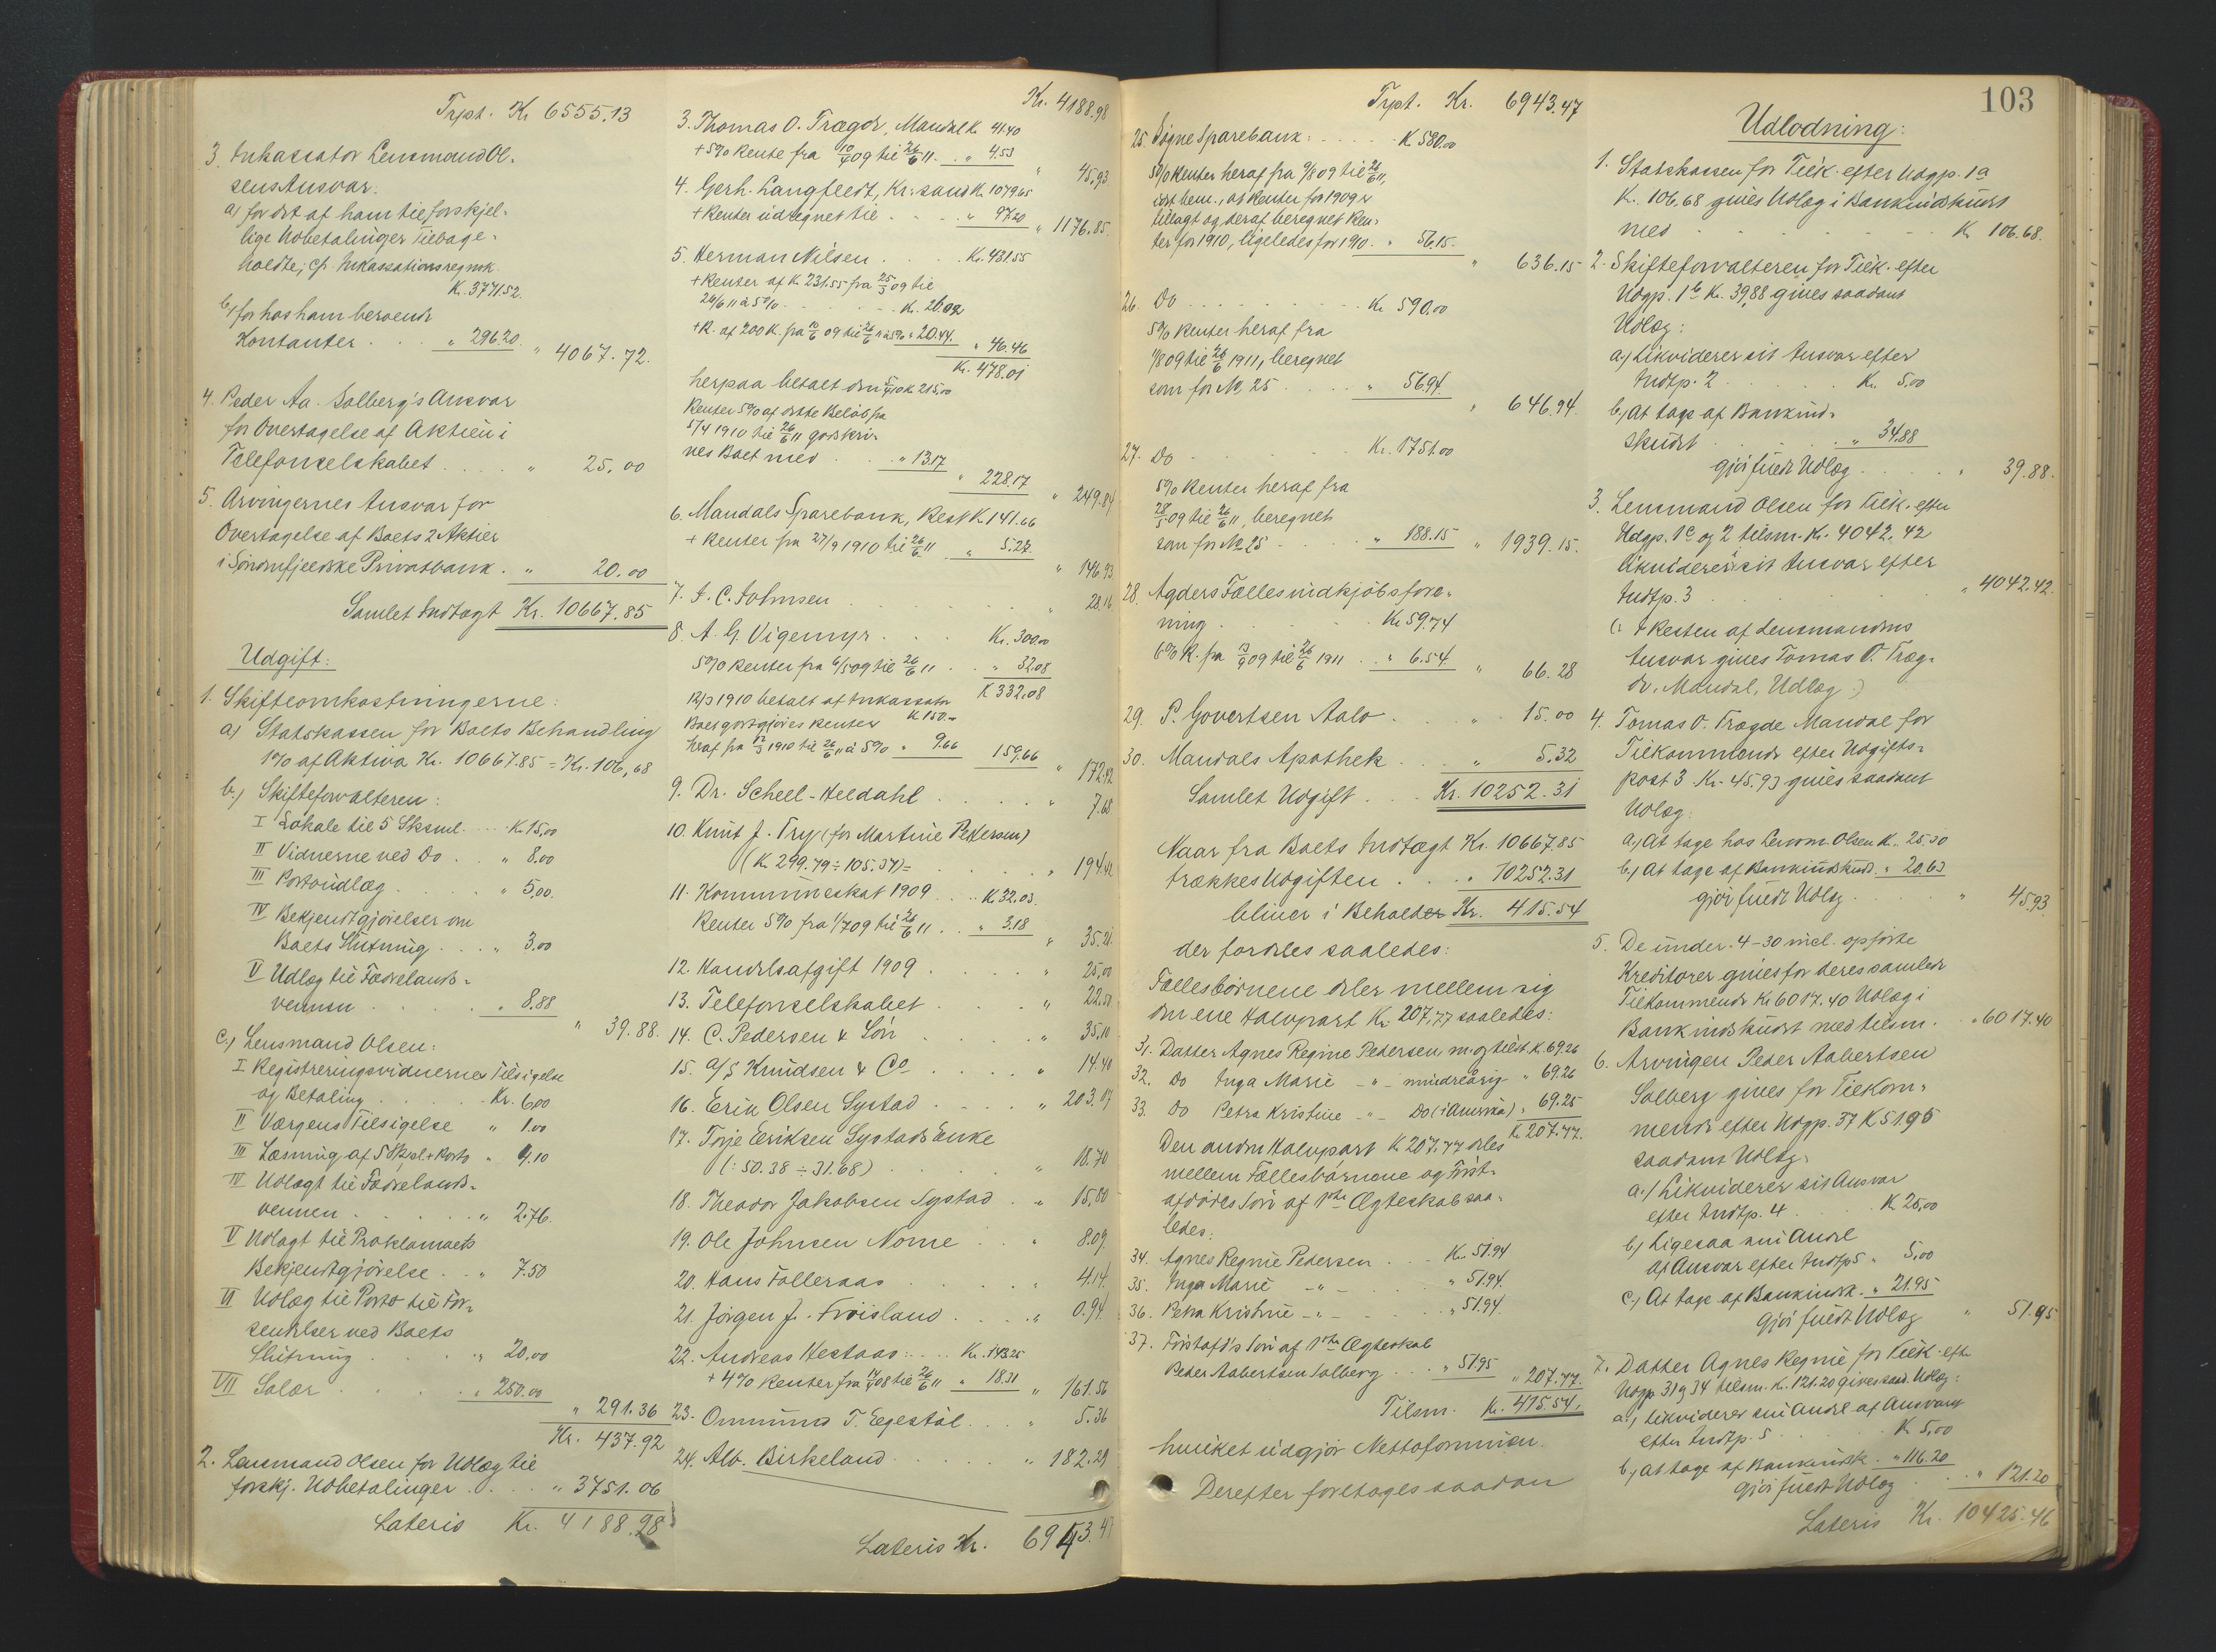 Trpt. Kr 6555.13
3. Inkassator Lensmand Ol-
sens Ansvar:
a) for det af ham til forskjel-
lige Udbetalinger Tilbage-
holdte, cfr. Inkassationsregnsk.
Kr. 3771.52.
b) for hos ham beroende
Kontanter . . . " 296.20. " 4067.72.
4. Peder Aa. Solberg's Ansvar
for Overtagelse af Aktien i
Telefonselskabet . . . . " 25.00
5. Arvingernes Ansvar for
Overtagelse af Boets 2 Aktier
i Søndenfjeldske Privatbank . " 20.00
Samlet Indtægt Kr. 10667.85
Udgift:
1. Skifteomkostningerne:
a) Statskassen for Boets Behandling
1% af Aktiva Kr. 10667.85 = Kr. 106,68
b.) Skifteforvalteren:
I Lokale til 5 Sksml. . . . Kr. 15,00
II Vidnerne ved Do . . " 8.00
III Portoudlæg . . . . " 5,00.
IV Bekjendtgjørelser om
Boets Slutning . . . " 3.00
V Udlæg til Fædrelands-
vennen . . . . . " 8.88
" 39.88.
c.) Lensmand Olsen:
I Registreringsvidnernes Tilsigelse
og Betaling . . . . . Kr. 6,00
II Værgens Tilsigelse " 1.00
III Læsning af 5 Skspl + Porto " 4.10
IV Udlagt til Fædrelands-
vennen . . . . . " 2.76.
V Udlagt til Proklamaets
Bekjendtgjørelse . . " 7.50
VI Udlæg til Porto til For-
sendelser ved Boets
Slutning . . . . . " 20,00
VII Salær . . . . . " 250.00
" 291.36
Kr. 437.92
2. Lensmand Olsen for Udlæg til
forskj. Udbetalinger . . . . " 3751.06
Lateris Kr. 4188.98
Kr. 4188.98
3. Thomas O. Trægde, Mandal Kr. 41.40
+ 5% Rente fra 10/4 09 til 26/6 11 . . " 4.53
" 45,93
4. Gerh. Langfeldt, Kr:sand Kr. 1079.65
+ Renter udregnet til . . . . " 97.20
" 1176.85.
5. Herman Nilsen . . . . Kr. 431.55
+ Renter af Kr. 231.55 fra 25/3 09 til
26/6 11 à 5% . . . . . Kr. 26.02
+ R. af 200 K. fra 12/6 09 til 26/6 11 à 5% " 20.44. " 46.46
Kr. 478.01
herpaa betalt den 5/4 10 K 215,00
Renter 5% af dette Beløb fra
5/4 1910 til 26/6 11 godskri-
ves Boet med . . . " 13.17
" 228.17
" 249.84
6. Mandals Sparebank, Rest K. 141.66
+ Renter fra 27/9 1910 til 26/6 11 " 5.27.
" 146.93
7. J. C. Johnsen . . . . . . " 28.16
8. A. G. Vigemyr . . . . Kr. 300.00
5% Renter fra 6/5 09 til 26/6 11 . . " 32.08
K 332.08
12/3 1910 betalt af Inkassator
K 150.-
Boet godtgjøres Renter
heraf fra 12/3 1910 til 26/6 11 à 5% " 9.66 159,66
" 172.42
9. Dr. Scheel-Heldahl . . . . . " 7.68
10. Knut J. Try (for Martine Pettersen)
(Kr. 299.79 ÷ 105.37) = . . . . " 194.42
11. Kommuneskat 1909 . . . K 32.03.
Renter 5% fra 1/7 09 til 26/6 11 . . " 3.18
" 35.21.
12. Handelsafgift 1909 . . . . " 25,00
13. Telefonselskabet . . . . " 22.50
14. C. Pedersen & Søn . . . . " 35,10
15. A/S Knudsen & Co . . . . " 14.40
16. Erik Olsen Systad . . . . " 203.17
17. Torje Eriksen Systads Enke
(: 50.38 ÷ 31.68) . . . . . " 18.70
18. Theodor Jakobsen Systad . " 15,80
19. Ole Johnsen Nome . . . " 8.09
20. Hans Tolleraas . . . . . " 4.14.
21. Jørgen J. Frøisland . . . . " 0.94.
22. Andreas Hestaas: . . . Kr. 143.25
+ 4% Renter fra 14/4 08 til 26/6 11 " 18.31 " 161.56
23. Ommund T. Egestøl . . . . " 5.36
24. Alb. Birkeland . . . . . . " 182.29
Lateris Kr. 6943.47
Trpt. Kr. 6943.47
25. Søgne Sparebank: . . . . . K 580.00
5% Renter heraf fra 9/8 09 til 26/6 11,
idet bem., at Renter for 1909 er
tillagt og deraf beregnet Ren-
ter for 1910, ligeledes for 1910. " 56.15.
" 636.15
26. Do . . . . . . . . Kr 590.00
5% Renter heraf fra
1/8 09 til 26/6 1911, beregnet
som for No 25 . . . . " 56.94.
" 646.94.
27. Do . . . . . Kr. 1751.00
5% Renter heraf fra
28/5 09 til 26/6 11, beregnet
som for No 25 . . . . " 188.15 " 1939.15.
28. Agders Fællesindkjøbsfore-
ning . . . . . Kr 59.74
6% R. fra 13/9 09 til 26/6 1911 . " 6.54 " 66.28
29. P. Govertsen Aalo . . . . " 15.00
30. Mandals Apothek . . . " 5.32
Samlet Udgift . . . Kr. 10252.31
Naar fra Boets Indtægt Kr. 10667.85
trækkes Udgiften . . . " 10252.31
bliver i Behold Kr. 415.54
der fordeles saaledes:
Fællesbørnene deler mellem sig
den ene Halvpart Kr. 207,77 saaledes:
31. Datter Agnes Regine Pedersen m. og tilst. K. 69.26
32. Do Inga Marie -"- mindreårig " 69.26
33. Do Petra Kristine -"- Do (i Amerika) " 69.25
Kr 207.77.
Den anden Halvpart K 207.77 deles
mellem Fællesbørnene og Først-
afdødes Søn af 1ste Ægteskab saa-
ledes:
34. Agnes Regine Pedersen . . . Kr. 51.94
35. Inga Marie -"- " 51.94.
36. Petra Kristine -"- " 51.94.
37. Førstafd's Søn af 1ste Ægteskab
Peder Aabertsen Solberg . . " 51.95 " 207.77.
Tilsm. Kr. 415.54.
hvilket udgjør Nettoformuen.
Derefter foretages saadan
103
Udlodning:
1. Statskassen for Tilk. efter Udgp. 1a
Kr. 106,68 gives Udlæg i Bankindskudet
med . . . . . . . . Kr 106.68.
2. Skifteforvalteren for Tilk. efter
Udgp. 1b Kr. 39,88 gives saadant
Udlæg:
a.) Likviderer sit Ansvar efter
Indtp. 2 . . . . . Kr. 5,00
b.) At tage af Bankind-
skudet . . . . . " 34.88
gjør fuldt Udlæg . . . . " 39.88.
3. Lensmand Olsen for Tilk. efter
Udgp. 1c og 2 tilsm. Kr. 4042,42
likviderer sit Ansvar efter
Indtp. 3 . . . . . . . " 4042.42.
(: + Resten af Lensmandens
Ansvar gives Tomas O. Træg-
de, Mandal, Udlæg :)
4. Tomas O. Trægde Mandal for
Tilkommende efter Udgifts-
post 3 Kr. 45.93 gives saadant
Udlæg:
a.) At tage hos Lensm. Olsen K. 25.30
b.) At tage af Bankindskud. " 20.63
gjør fuldt Udlæg . . . . " 45.93
5. De under 4-30 incl. opførte
Kreditorer gives for deres samlede
Tilkommende Kr 6017.40 Udlæg i
Bankindskudet med tilsm. . " 6017.40
6. Arvingen Peder Aabertsen
Solberg gives for Tilkom-
mende efter Udgp. 37 K 51.95
saadant Udlæg:
a.) Likviderer sit Ansvar
efter Indtp. 4 . . . K. 25,00
b.) Ligesaa sin Andel
af Ansvar efter Indtp 5 " 5,00
c.) At tage af Bankindsk. " 21.95
gjør fuldt Udlæg " 51.95
7. Datter Agnes Regine for Tilk. eft.
Udgp. 31 og 34 tilsm. Kr. 121.20 gives saad. Udlæg:
a.) Likviderer sin Andel af Ansvaret
efter Indtp. 5 . . . . . K 5,00
b.) At tage af Bankindsk. . " 116.20
gjør fuldt Udlæg . . . " 121.20
Lateris Kr. 10425.46